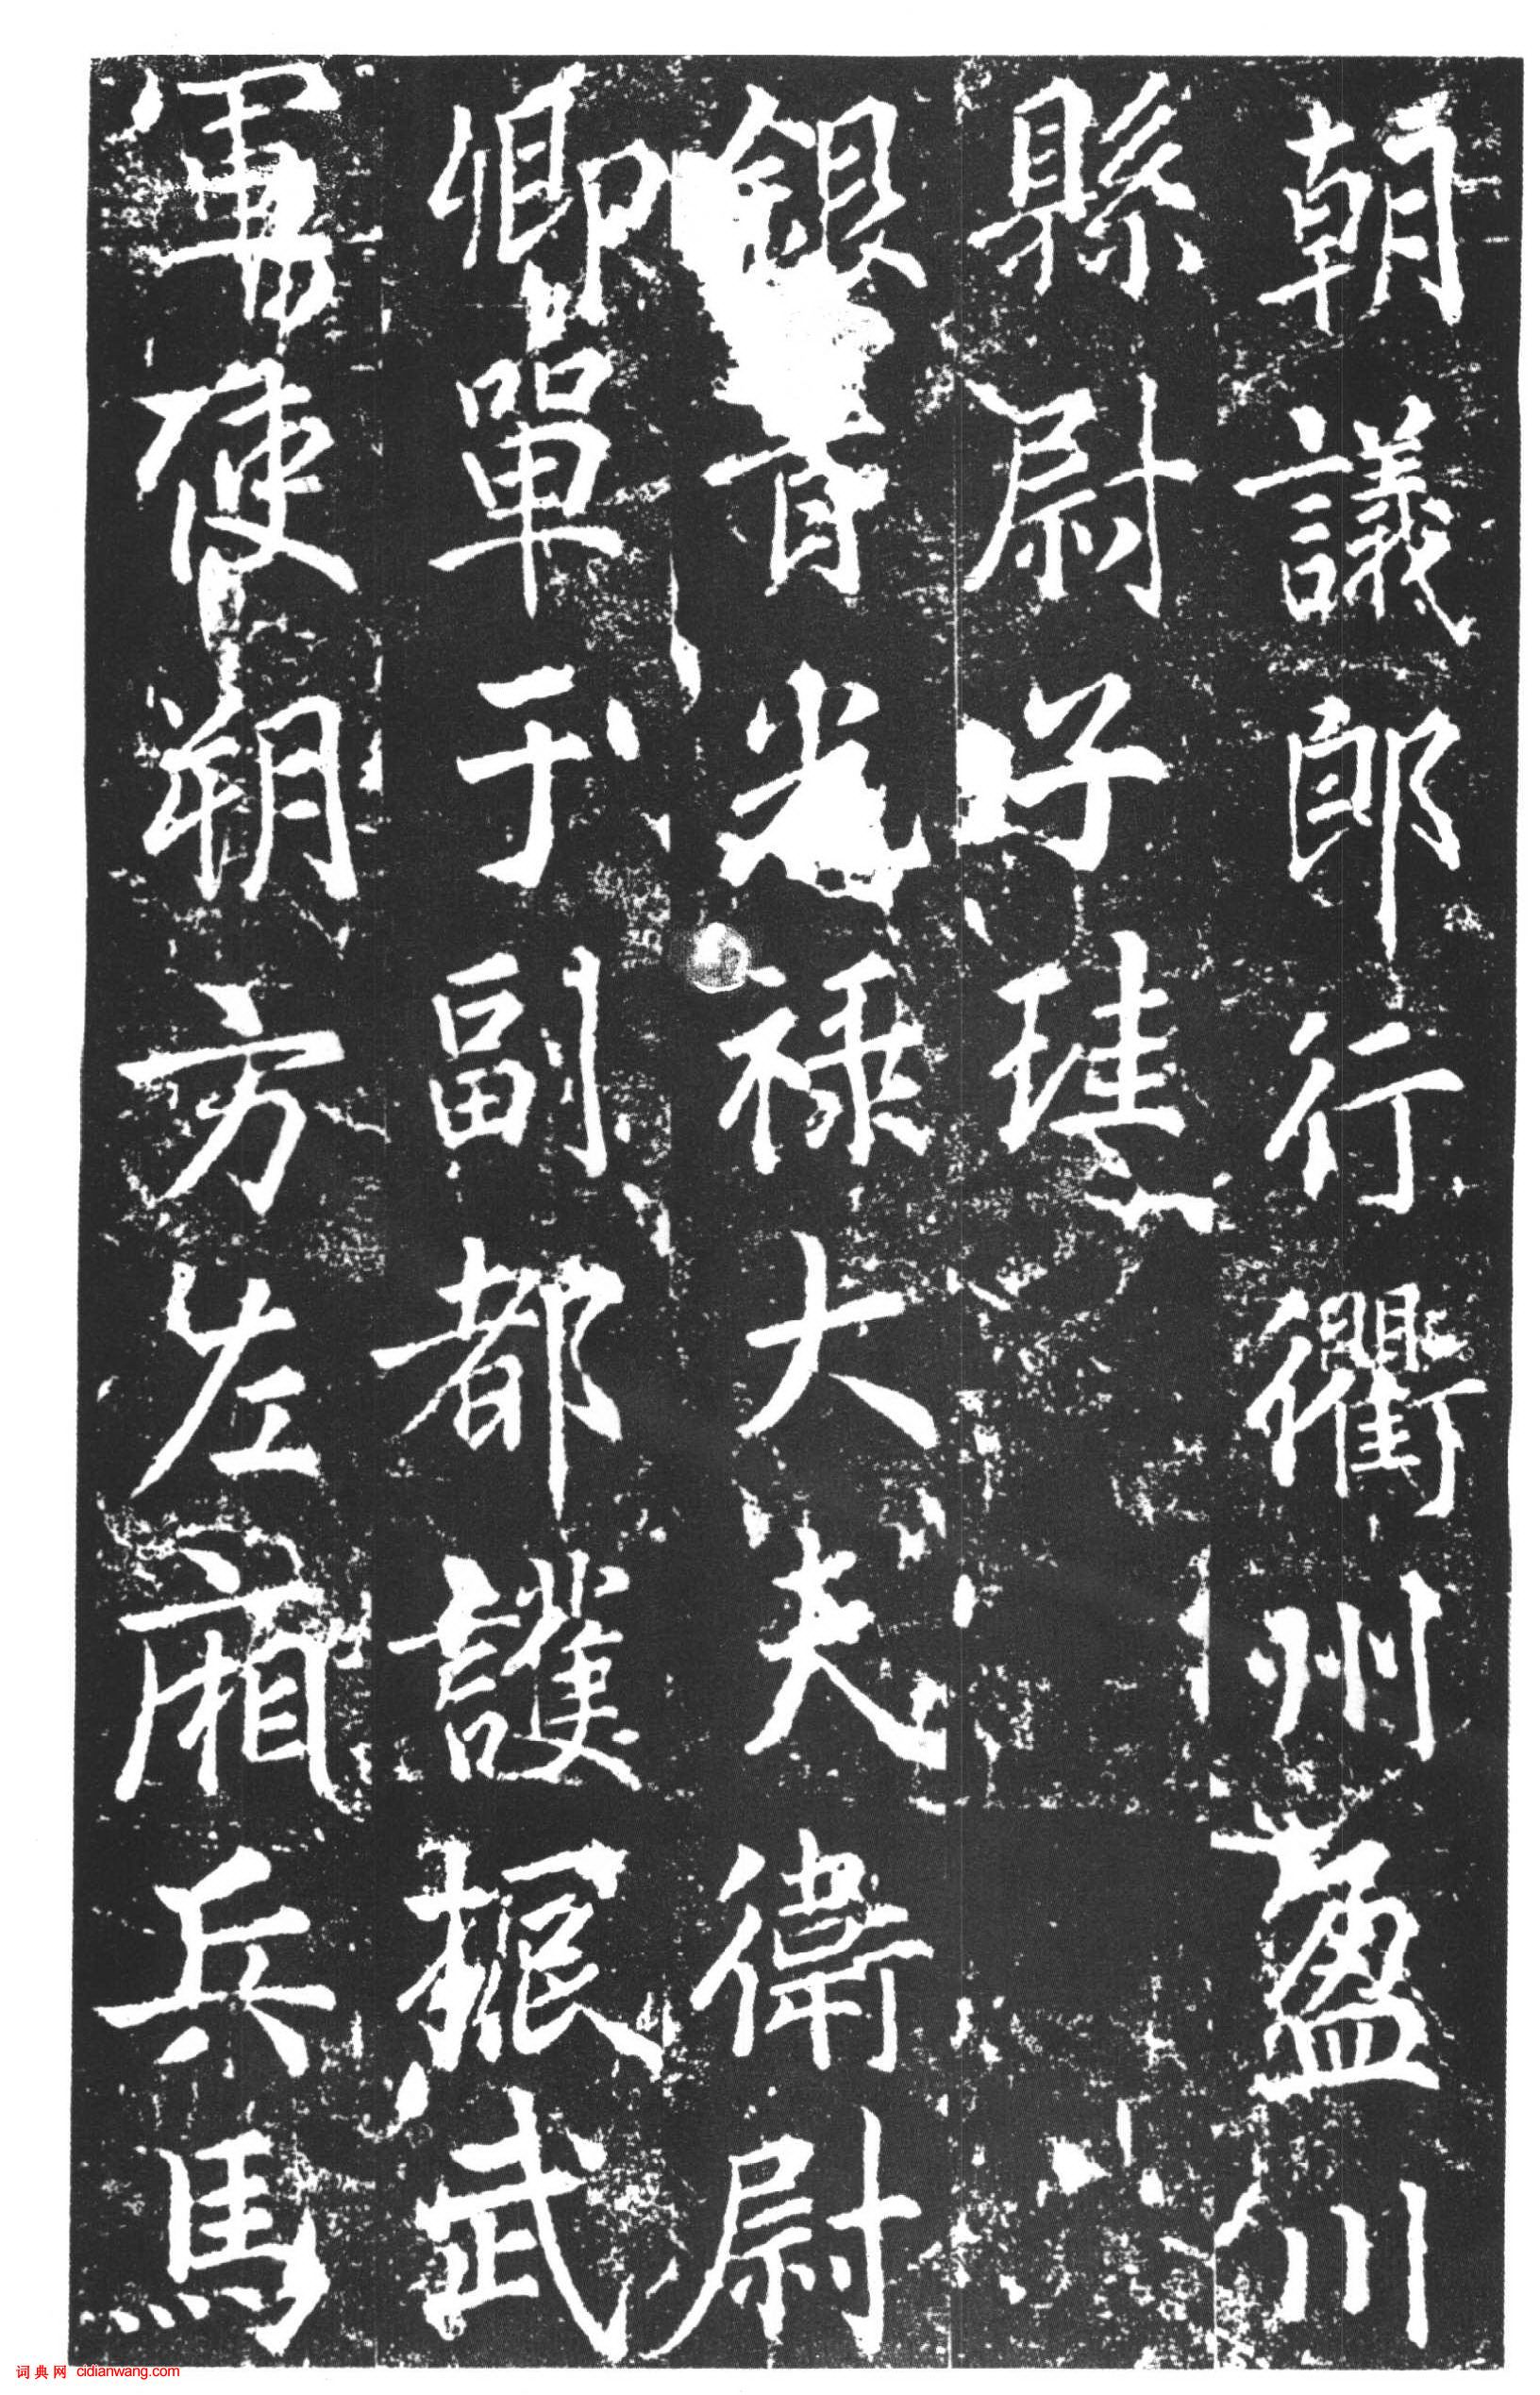 朝議郎行衢州盈川
縣尉子珪
銀青光祿大夫衛尉
卿單于副都護振武
軍使朔方左廂兵馬
词典网 cidianwang.com